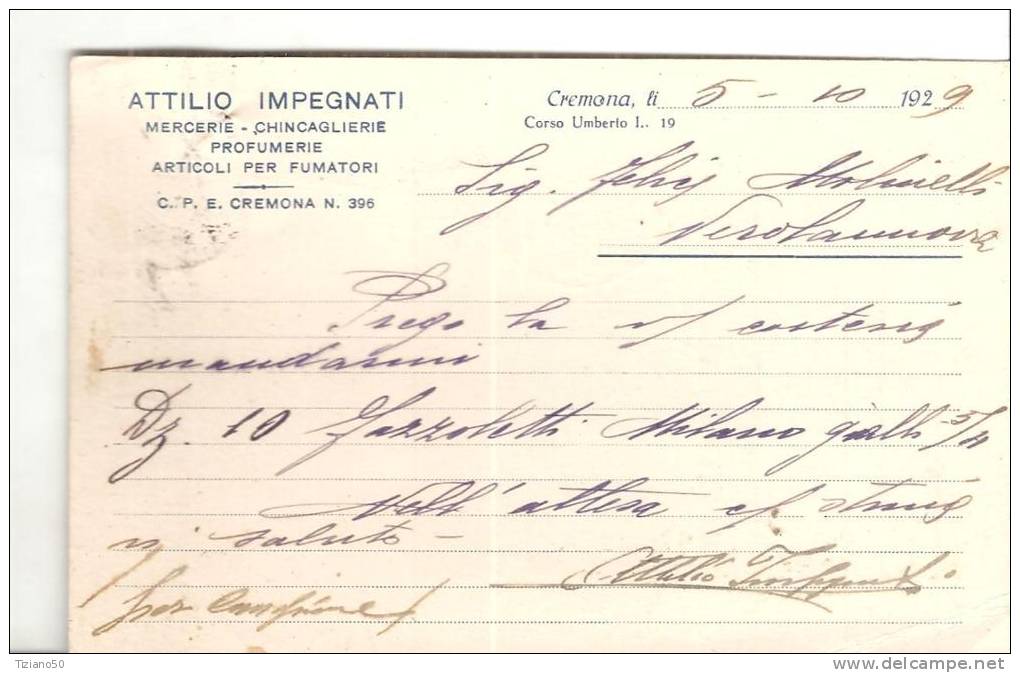 ATTILIO IMPEGNATI
MERCERIE - CHINCAGLIERIE
PROFUMERIE
ARTICOLI PER FUMATORI
C. P. E. CREMONA N. 396
Cremona, li 5 - 10 1929
Corso Umberto I.. 19
Sig. Molinelli
Verolannova
Prego la v/
mandarmi
Dz. 10 Fazzoletti Milano gialli 5/4
Nell'attesa
saluto -
Attilio Impegnati
per
Tziano50
delcampe.net